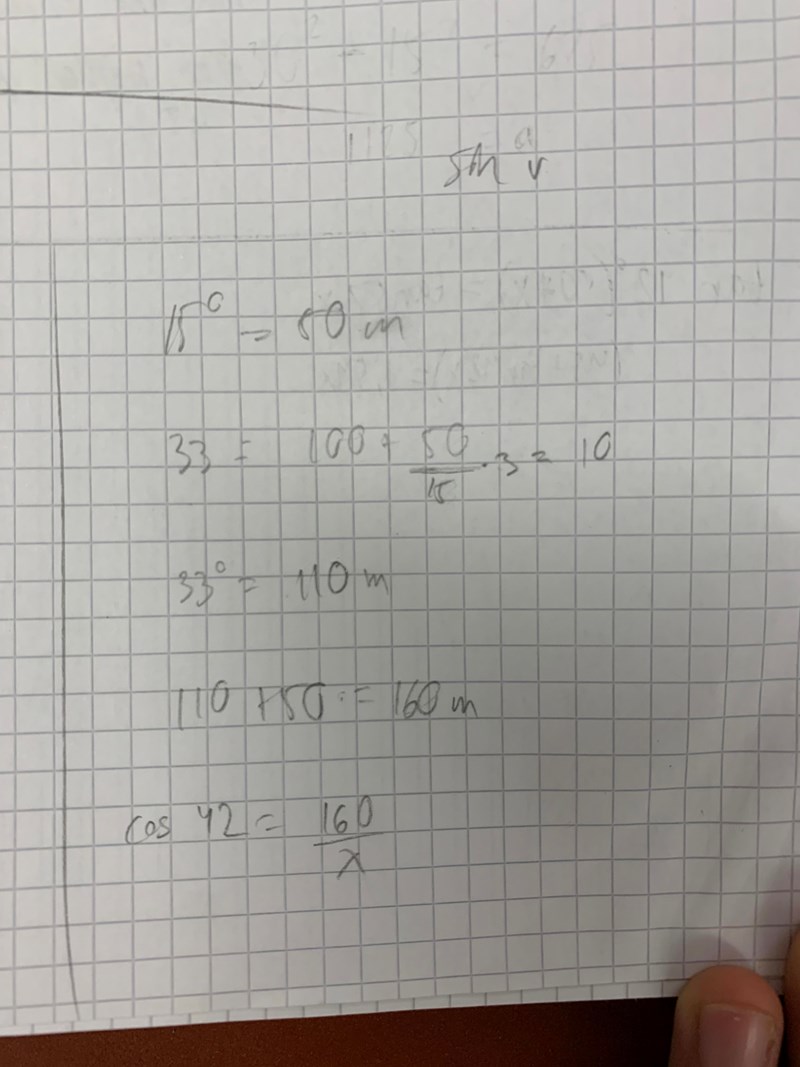 sin v
15° = 50 m
33 = 100 + 50/15 · 3 = 10
33° = 110 m
110 + 50 = 160 m
cos 42 = 160/x